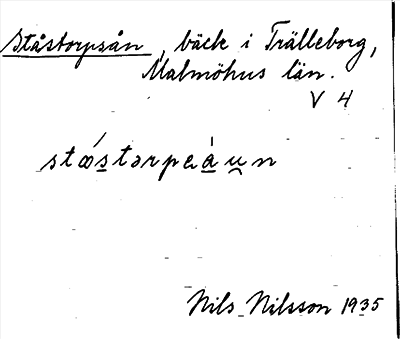 Ståstorpsån, bäck i Trälleborg,
Malmöhus län.
V 4
stớs̲tɔrpɛá̲u̯n
Nils Nilsson 1935